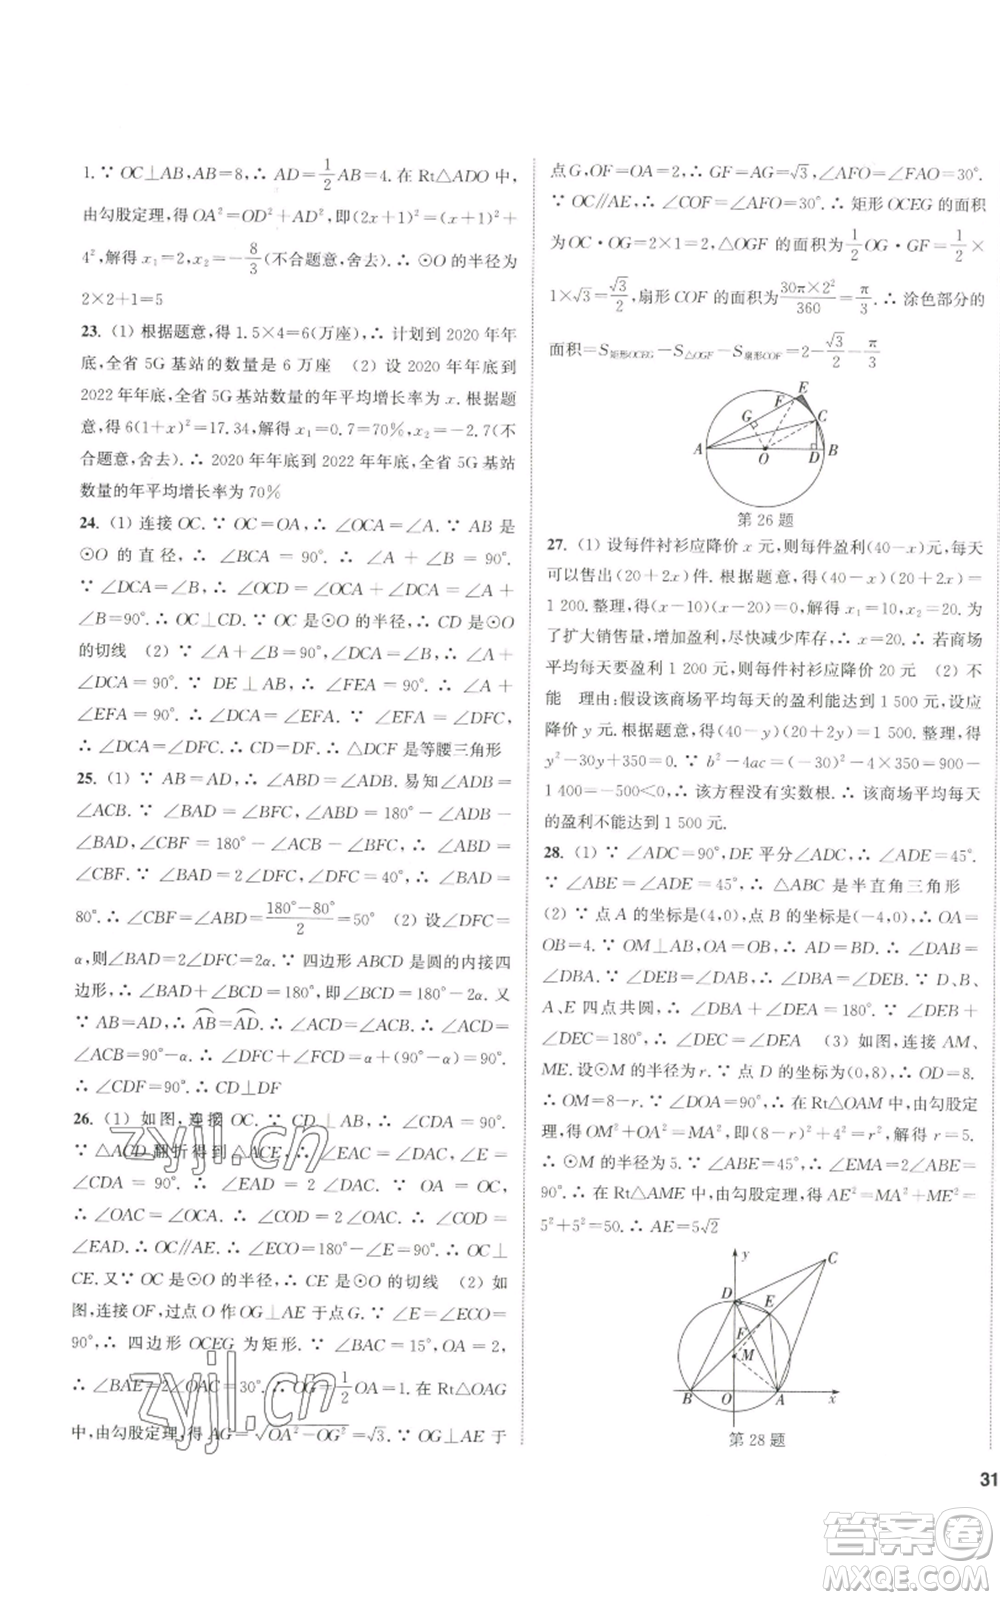 1.∵ OC⊥AB,AB=8,∴ AD=1/2AB=4.在 Rt△ADO 中,
由勾股定理,得 OA²=OD²+AD²,即(2x+1)²=(x+1)²+
4²,解得 x₁=2,x₂=-8/3(不合题意,舍去).∴ ⊙O 的半径为
2×2+1=5
23. (1) 根据题意,得 1.5×4=6(万座),∴ 计划到 2020 年年
底,全省 5G 基站的数量是 6 万座 (2) 设 2020 年年底到
2022 年年底,全省 5G 基站数量的年平均增长率为 x.根据题
意,得 6(1+x)²=17.34,解得 x₁=0.7=70%,x₂=-2.7(不
合题意,舍去).∴ 2020 年年底到 2022 年年底,全省 5G 基站
数量的年平均增长率为 70%
24. (1) 连接 OC.∵ OC=OA,∴ ∠OCA=∠A.∵ AB 是
⊙O 的直径,∴ ∠BCA=90°.∴ ∠A+∠B=90°.
∵ ∠DCA=∠B,∴ ∠OCD=∠OCA+∠DCA=∠A+
∠B=90°.∴ OC⊥CD.∵ OC 是⊙O 的半径,∴ CD 是⊙O
的切线 (2) ∵ ∠A+∠B=90°,∠DCA=∠B,∴ ∠A+
∠DCA=90°.∵ DE⊥AB,∴ ∠FEA=90°.∴ ∠A+
∠EFA=90°.∴ ∠DCA=∠EFA.∵ ∠EFA=∠DFC,
∴ ∠DCA=∠DFC.∴ CD=DF.∴ △DCF 是等腰三角形
25. (1) ∵ AB=AD,∴ ∠ABD=∠ADB.易知∠ADB=
∠ACB.∵ ∠BAD=∠BFC,∠ABD=180°-∠BAD-
∠ADB,∠CBF=180°-∠ACB-∠BFC,∴ ∠ABD=
∠CBF.∵ ∠BAD=2∠DFC,∠DFC=40°,∴ ∠BAD=
80°.∴ ∠CBF=∠ABD=(180°-80°)/2=50° (2) 设∠DFC=
α,则∠BAD=2∠DFC=2α.∵ 四边形 ABCD 是圆的内接四
边形,∴ ∠BAD+∠BCD=180°,即∠BCD=180°-2α.又
∵ AB=AD,∴ AB⌒=AD⌒.∴ ∠ACD=∠ACB.∴ ∠ACD=
∠ACB=90°-α.∴ ∠DFC+∠FCD=α+(90°-α)=90°.
∴ ∠CDF=90°.∴ CD⊥DF
26. (1) 如图,连接 OC.∵ CD⊥AB,∴ ∠CDA=90°.
∵ △ACD 翻折得到△ACE,∴ ∠EAC=∠DAC,∠E=
∠CDA=90°.∴ ∠EAD=2∠OAC.∵ OA=OC,
∴ ∠OAC=∠OCA.∴ ∠COD=2∠OAC.∴ ∠COD=
∠EAD.∴ OC∥AE.∴ ∠ECO=180°-∠E=90°.∴ OC⊥
CE.又∵ OC 是⊙O 的半径,∴ CE 是⊙O 的切线 (2) 如
图,连接 OF,过点 O 作 OG⊥AE 于点 G.∵ ∠E=∠ECO=
90°,∴ 四边形 OCEG 为矩形.∵ ∠BAC=15°,OA=2,
∴ ∠BAE=2∠OAC=30°.∴ OG=1/2OA=1.在 Rt△OAG
中,由勾股定理,得 AG=√(OA²-OG²)=√3.∵ OG⊥AF 于
点 G,OF=OA=2,∴ GF=AG=√3,∠AFO=∠FAO=30°.
∵ OC∥AE,∴ ∠COF=∠AFO=30°.∴ 矩形 OCEG 的面积
为 OC·OG=2×1=2,△OGF 的面积为1/2OG·GF=1/2×
1×√3=√3/2,扇形 COF 的面积为(30π×2²)/360=π/3.∴ 涂色部分的
面积=S矩形OCEG-S△OGF-S扇形COF=2-√3/2-π/3
E
F
G
C
A
O
D
B
第 26 题
27. (1) 设每件衬衫应降价 x 元,则每件盈利(40-x)元,每天
可以售出(20+2x)件.根据题意,得(40-x)(20+2x)=
1 200.整理,得(x-10)(x-20)=0,解得 x₁=10,x₂=20.为
了扩大销售量,增加盈利,尽快减少库存,∴ x=20.∴ 若商场
平均每天要盈利 1 200 元,则每件衬衫应降价 20 元 (2) 不
能 理由:假设该商场平均每天的盈利能达到 1 500 元,设应
降价 y 元.根据题意,得(40-y)(20+2y)=1 500.整理,得
y²-30y+350=0.∵ b²-4ac=(-30)²-4×350=900-
1 400=-500<0,∴ 该方程没有实数根.∴ 该商场平均每天
的盈利不能达到 1 500 元.
28. (1) ∵ ∠ADC=90°,DE 平分∠ADC,∴ ∠ADE=45°.
∵ ∠ABE=∠ADE=45°,∴ △ABC 是半直角三角形
(2) ∵ 点 A 的坐标是(4,0),点 B 的坐标是(-4,0),∴ OA=
OB=4.∵ OM⊥AB,OA=OB,∴ AD=BD.∴ ∠DAB=
∠DBA.∵ ∠DEB=∠DAB,∴ ∠DBA=∠DEB.∵ D、B、
A、E 四点共圆,∴ ∠DBA+∠DEA=180°.∵ ∠DEB+
∠DEC=180°,∴ ∠DEC=∠DEA (3) 如图,连接 AM、
ME.设⊙M 的半径为 r.∵ 点 D 的坐标为(0,8),∴ OD=8.
∴ OM=8-r.∵ ∠DOA=90°,∴ 在 Rt△OAM 中,由勾股定
理,得 OM²+OA²=MA²,即(8-r)²+4²=r²,解得 r=5.
∴ ⊙M 的半径为 5.∵ ∠ABE=45°,∴ ∠EMA=2∠ABE=
90°.∴ 在 Rt△AME 中,由勾股定理,得 AE²=MA²+ME²=
5²+5²=50.∴ AE=5√2
y
C
D
E
F
M
B
O
A
x
第 28 题
31
zyjl.cn
zyjl.cn
答案卷
MXQE.COM